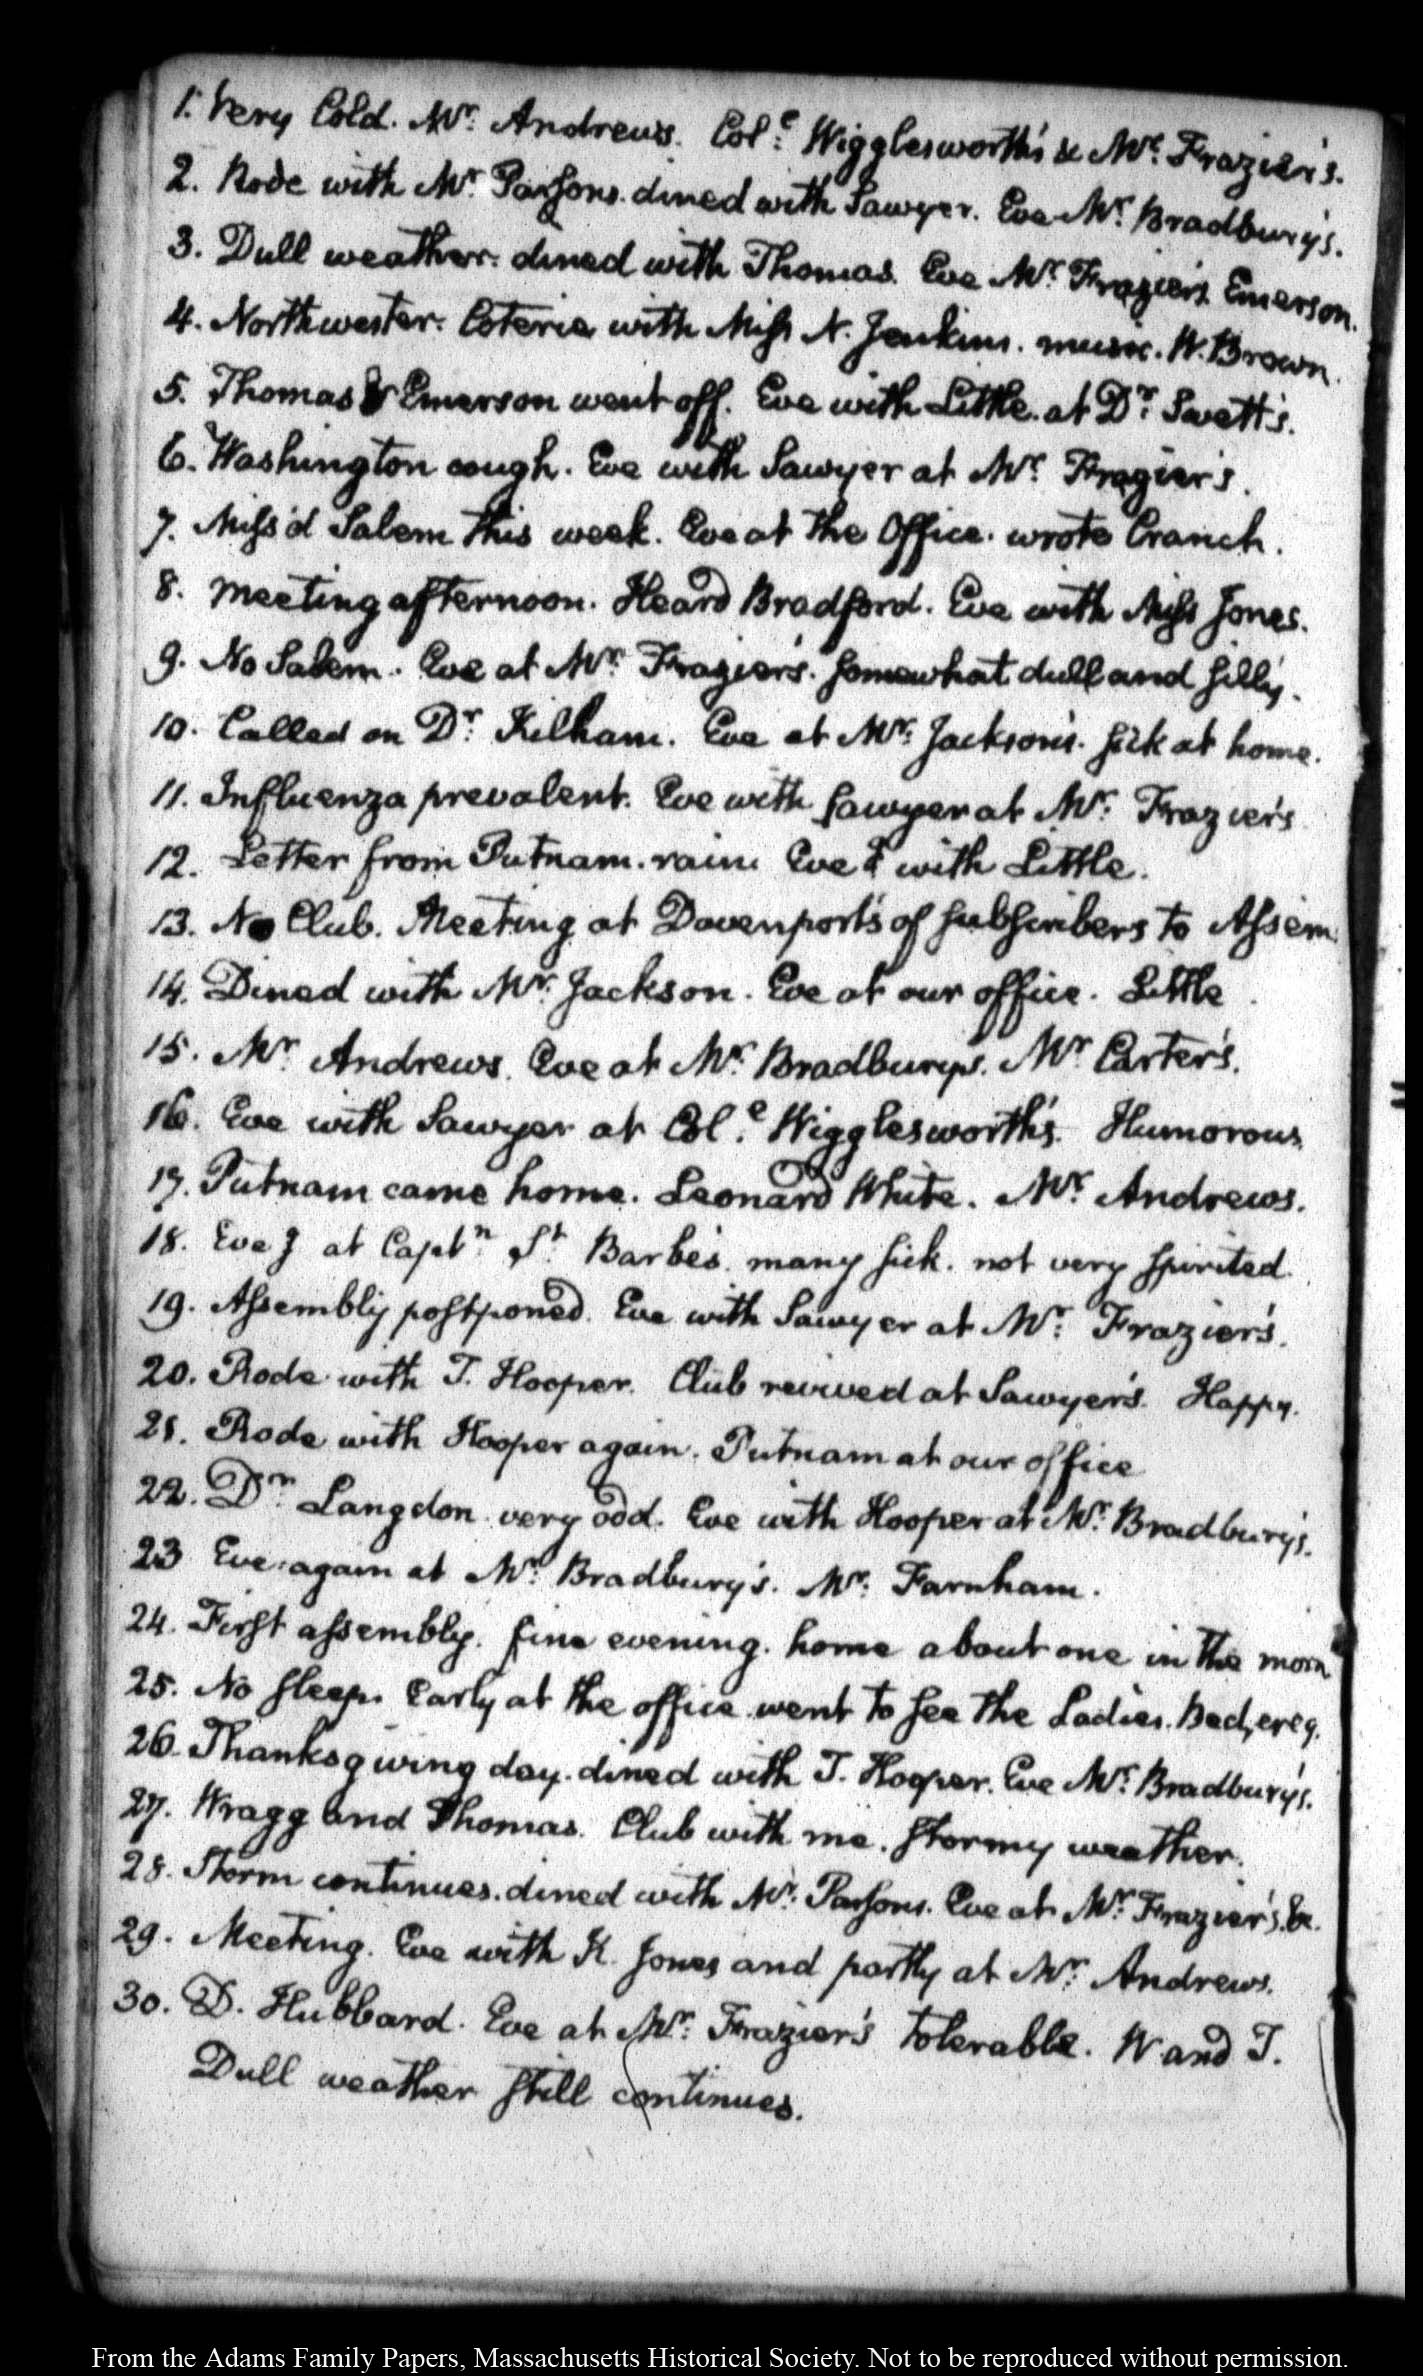 1. Very Cold. Mr. Andrews. Cole. Wigglesworth's & Mr. Frazier's.
2. Rode with Mr. Parsons. dined with Sawyer. Eve Mr. Bradbury's.
3. Dull weather. dined with Thomas. Eve Mr. Frazier's. Emerson.
4. Northwester. Coterie with Miss N. Jenkins. music. W. Brown.
5. Thomas & Emerson went off. Eve with Little. at Dr. Swett's.
6. Washington cough. Eve with Sawyer at Mr. Frazier's.
7. Miss'd Salem this week. Eve at the Office. wrote Cranch.
8. Meeting afternoon. Heard Bradford. Eve with Miss Jones.
9. No Salem. Eve at Mr. Frazier's. somewhat dull and silly.
10. Called on Dr. Kilham. Eve at Mr. Jackson's. sick at home.
11. Influenza prevalent. Eve with Sawyer at Mr. Frazier's
12. Letter from Putnam. rain. Eve with Little.
13. No Club. Meeting at Davenport's of subscribers to Assem
14. Dined with Mr. Jackson. Eve at our office. Little
15. Mr. Andrews. Eve at Mr. Bradbury's. Mr. Carter's.
16. Eve with Sawyer at Cole. Wigglesworth's. Humorous
17. Putnam came home. Leonard White. Mr. Andrews.
18. Eve at Captn. St. Barbe's. many sick. not very spirited.
19. Assembly postponed. Eve with Sawyer at Mr. Frazier's.
20. Rode with T. Hooper. Club revived at Sawyer's. Happy.
21. Rode with Hooper again. Putnam at our office
22. Dr. Langdon. very odd. Eve with Hooper at Mr. Bradbury's.
23 Eve again at Mr. Bradbury's. Mr. Farnham.
24. First assembly. fine evening. home about one in the morn
25. No sleep. Early at the office. went to see the Ladies.
26. Thanksgiving day. dined with T. Hooper. Eve Mr. Bradbury's.
27. Wragg and Thomas. Club with me. stormy weather.
28. Storm continues. dined with Mr. Parsons. Eve at Mr. Frazier's. &c.
29. Meeting. Eve with K. Jones and partly at Mr. Andrews.
30. D. Hubbard. Eve at Mr. Frazier's tolerable. W and T.
Dull weather still continues.
From the Adams Family Papers, Massachusetts Historical Society. Not to be reproduced without permission.